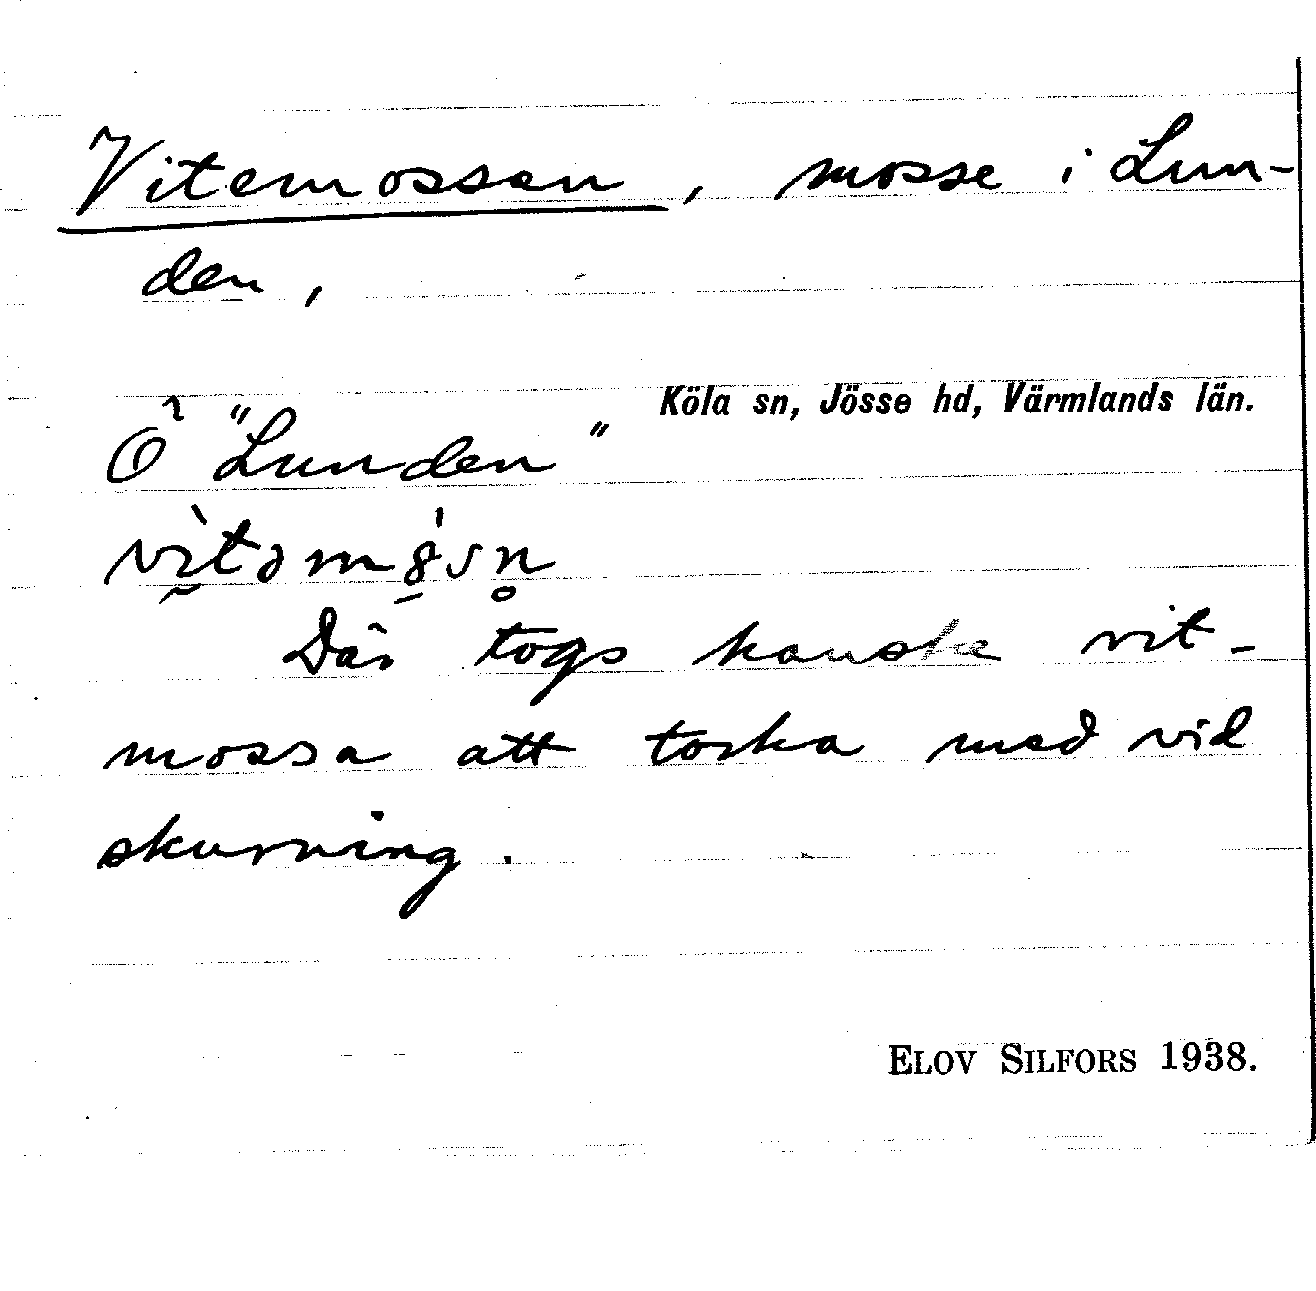 Vitemossen, mosse i Lun-
den,
Köla sn, Jösse hd, Värmlands län.
Ö "Lunden"
Där togs kanske vit-
mossa att torka med vid
skurning.
ELOV SILFORS 1938.